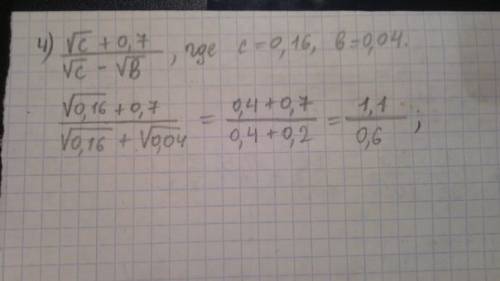 4) (√c + 0,7)/(√c - √в), где c = 0,16, в = 0,04.
(√0,16 + 0,7)/(√0,16 + √0,04) = (0,4 + 0,7)/(0,4 + 0,2) = 1,1/0,6 ;